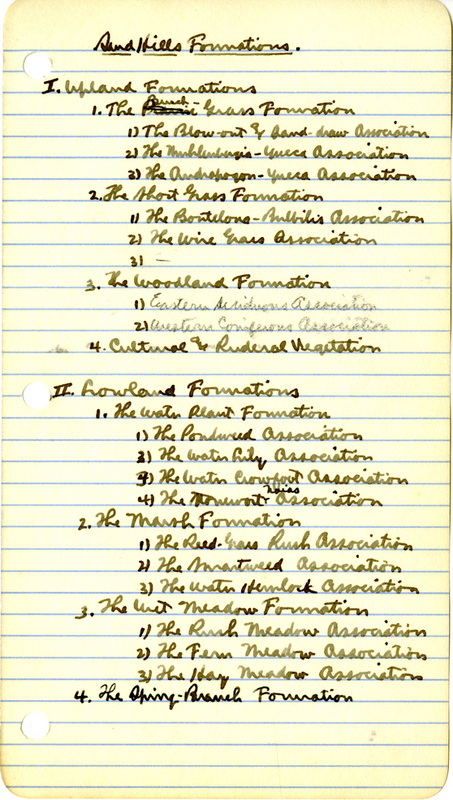 Sand Hills Formations.
I. Upland Formations
1. The Bunch-Grass Formation
1) The Blow-out & Sand-draw Association
2) The Muhlenbergia-Yucca Association
3) The Andropogon-Yucca Association
2. The Short Grass Formation
1) The Bouteloua-Bulbilis Association
2) The Wire Grass Association
3) —
3. The Woodland Formation
1) Eastern Deciduous Association
2) Western Coniferous Association
4. Cultural & Ruderal Vegetation
II. Lowland Formations
1. The Water Plant Formation
1) The Pondweed Association
3) The Water Lily Association
4) The Water Crowfoot Association
4) The Naias Association
2. The Marsh Formation
1) The Reed-Grass Rush Association
2) The Smartweed Association
3) The Water Hemlock Association
3. The Wet Meadow Formation
1) The Rush Meadow Association
2) The Fern Meadow Association
3) The Hay Meadow Association
4. The Spring-Branch Formation